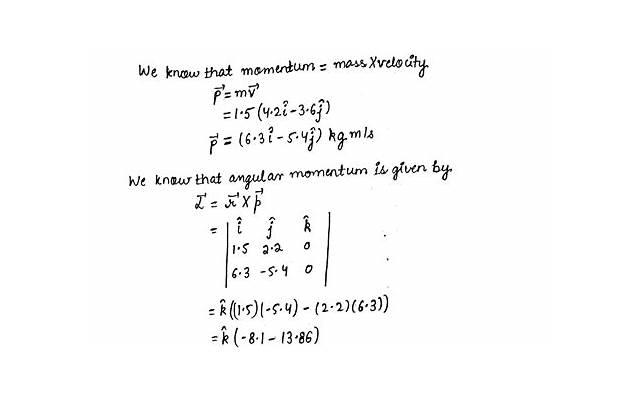 We know that momentum = mass X velocity
p⃗ = mv⃗
= 1·5 (4·2î - 3·6ĵ)
p⃗ = (6·3î - 5·4ĵ) kg m/s
We know that angular momentum is given by.
L⃗ = r⃗ X p⃗
= | î ĵ k̂ |
| 1·5 2·2 0 |
| 6·3 -5·4 0 |
= k̂ ((1·5)(-5·4) - (2·2)(6·3))
= k̂ (-8·1 - 13·86)